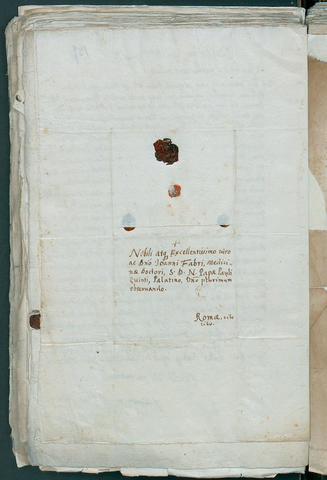 +
Nobili atq Excellentissimo viro
ac Dno Joanni Fabri, Medici-
næ Doctori, S. D. N. Papæ Pauli
Quinti, Palatino, Dno plurimum
observando.
Romæ. cito
cito.